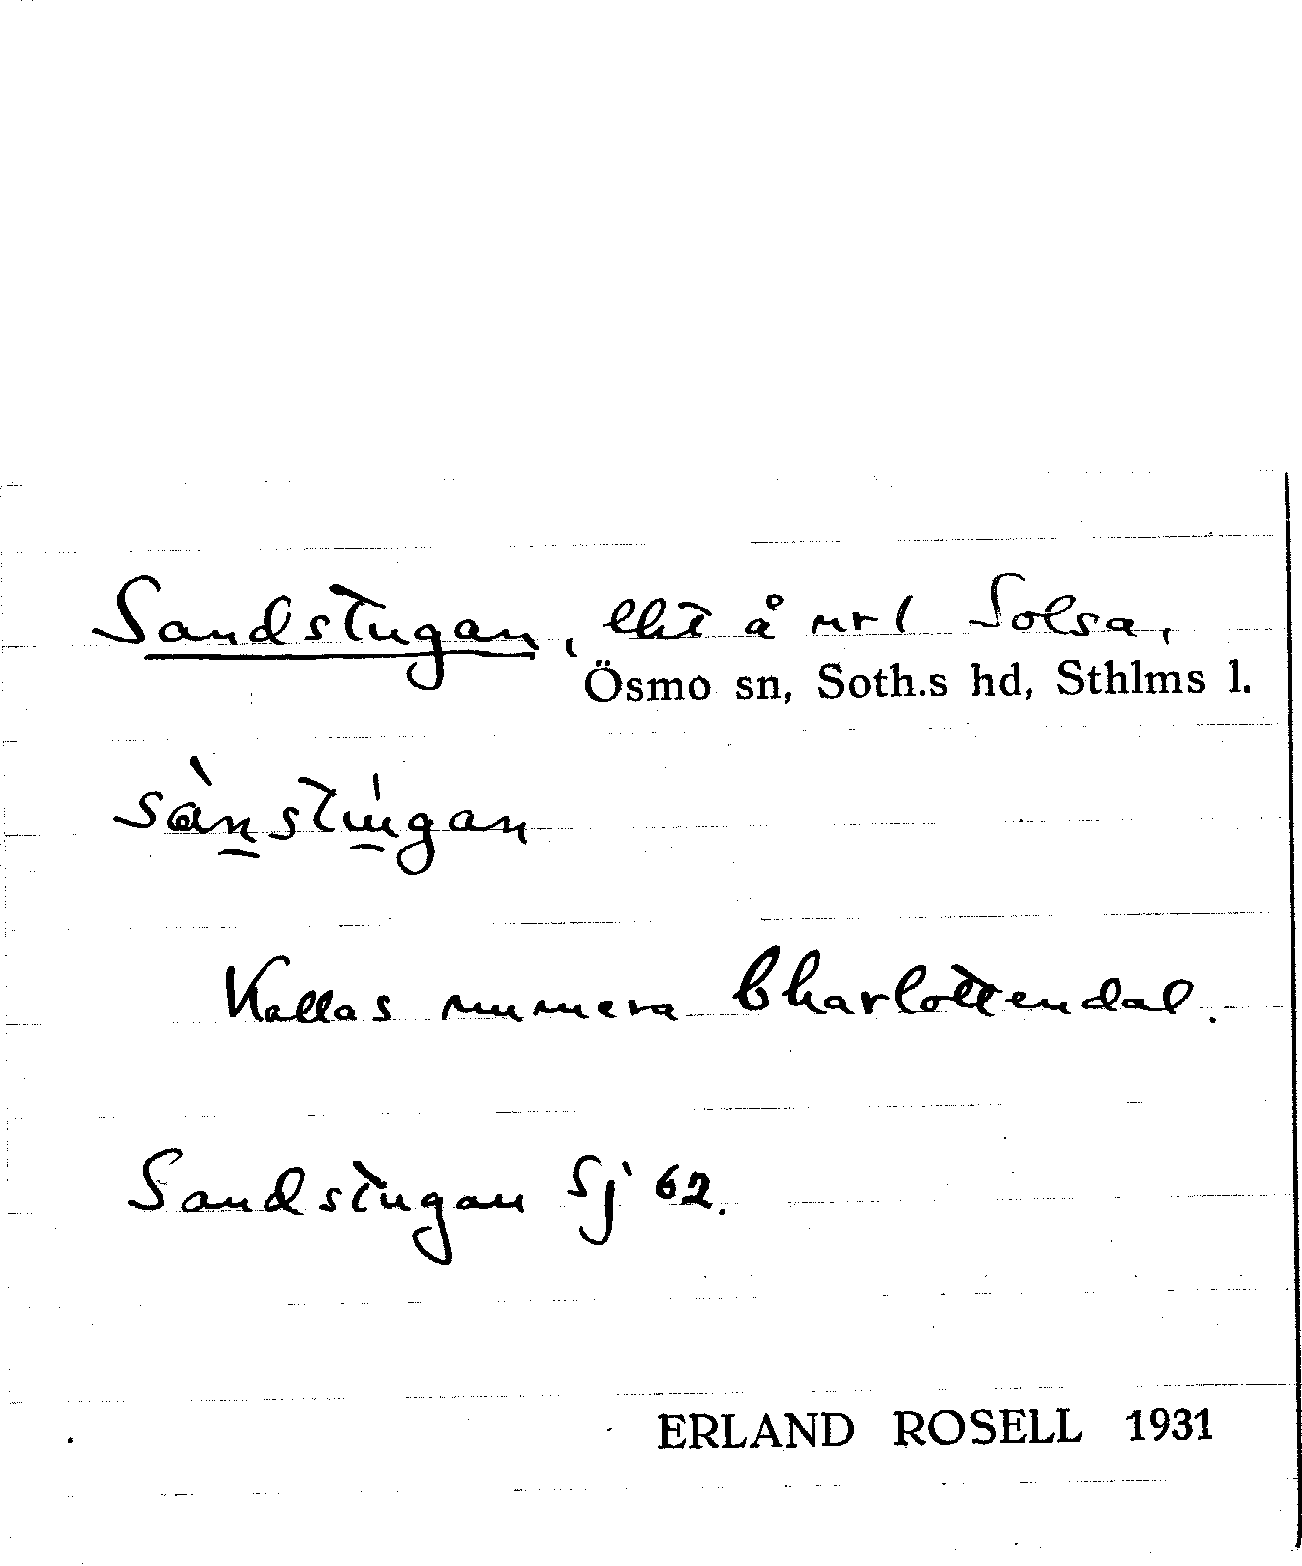 Sandstugan, lht å nr 1 Solsa,
Ösmo sn, Soth.s hd, Sthlms l.
sànstúgan
Kallas numera Charlottendal.
Sandstugan Sj 62.
ERLAND ROSELL 1931